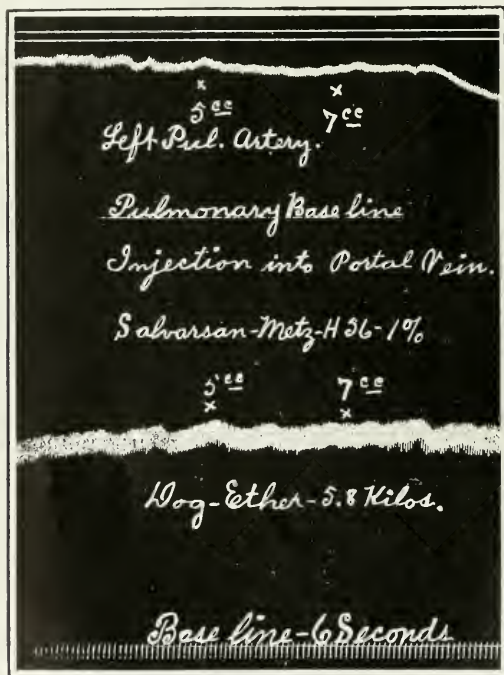 5 cc
7 cc
Left Pul. Artery.
Pulmonary Base line
Injection into Portal Vein.
Salvarsan-Metz-H 56-1%
5 cc 7 cc
Dog-Ether-5.8 Kilos.
Base line-6 Seconds